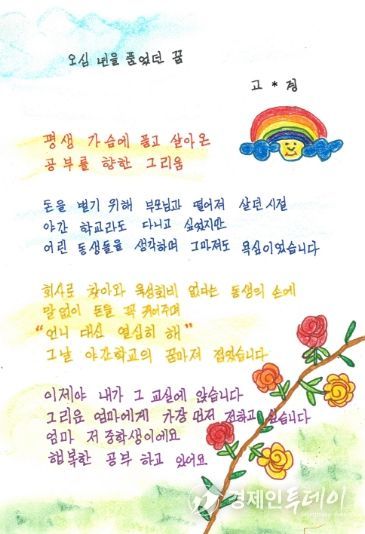 오십 년을 품었던 꿈
고 * 정
평생 가슴에 품고 살아온
공부를 향한 그리움
돈을 벌기 위해 부모님과 떨어져 살던 시절
야간 학교라도 다니고 싶었지만
어린 동생들을 생각하며 그마저도 욕심이었습니다
회사로 찾아와 육성회비 없다는 동생의 손에
말없이 돈을 꼭 쥐어주며
"언니 대신 열심히 해"
그날 야간학교의 꿈마저 접었습니다
이제야 내가 그 교실에 앉습니다
그리운 엄마에게 가장 먼저 전하고 싶습니다
엄마 저 중학생이에요
행복한 공부 하고 있어요
경제인투데이